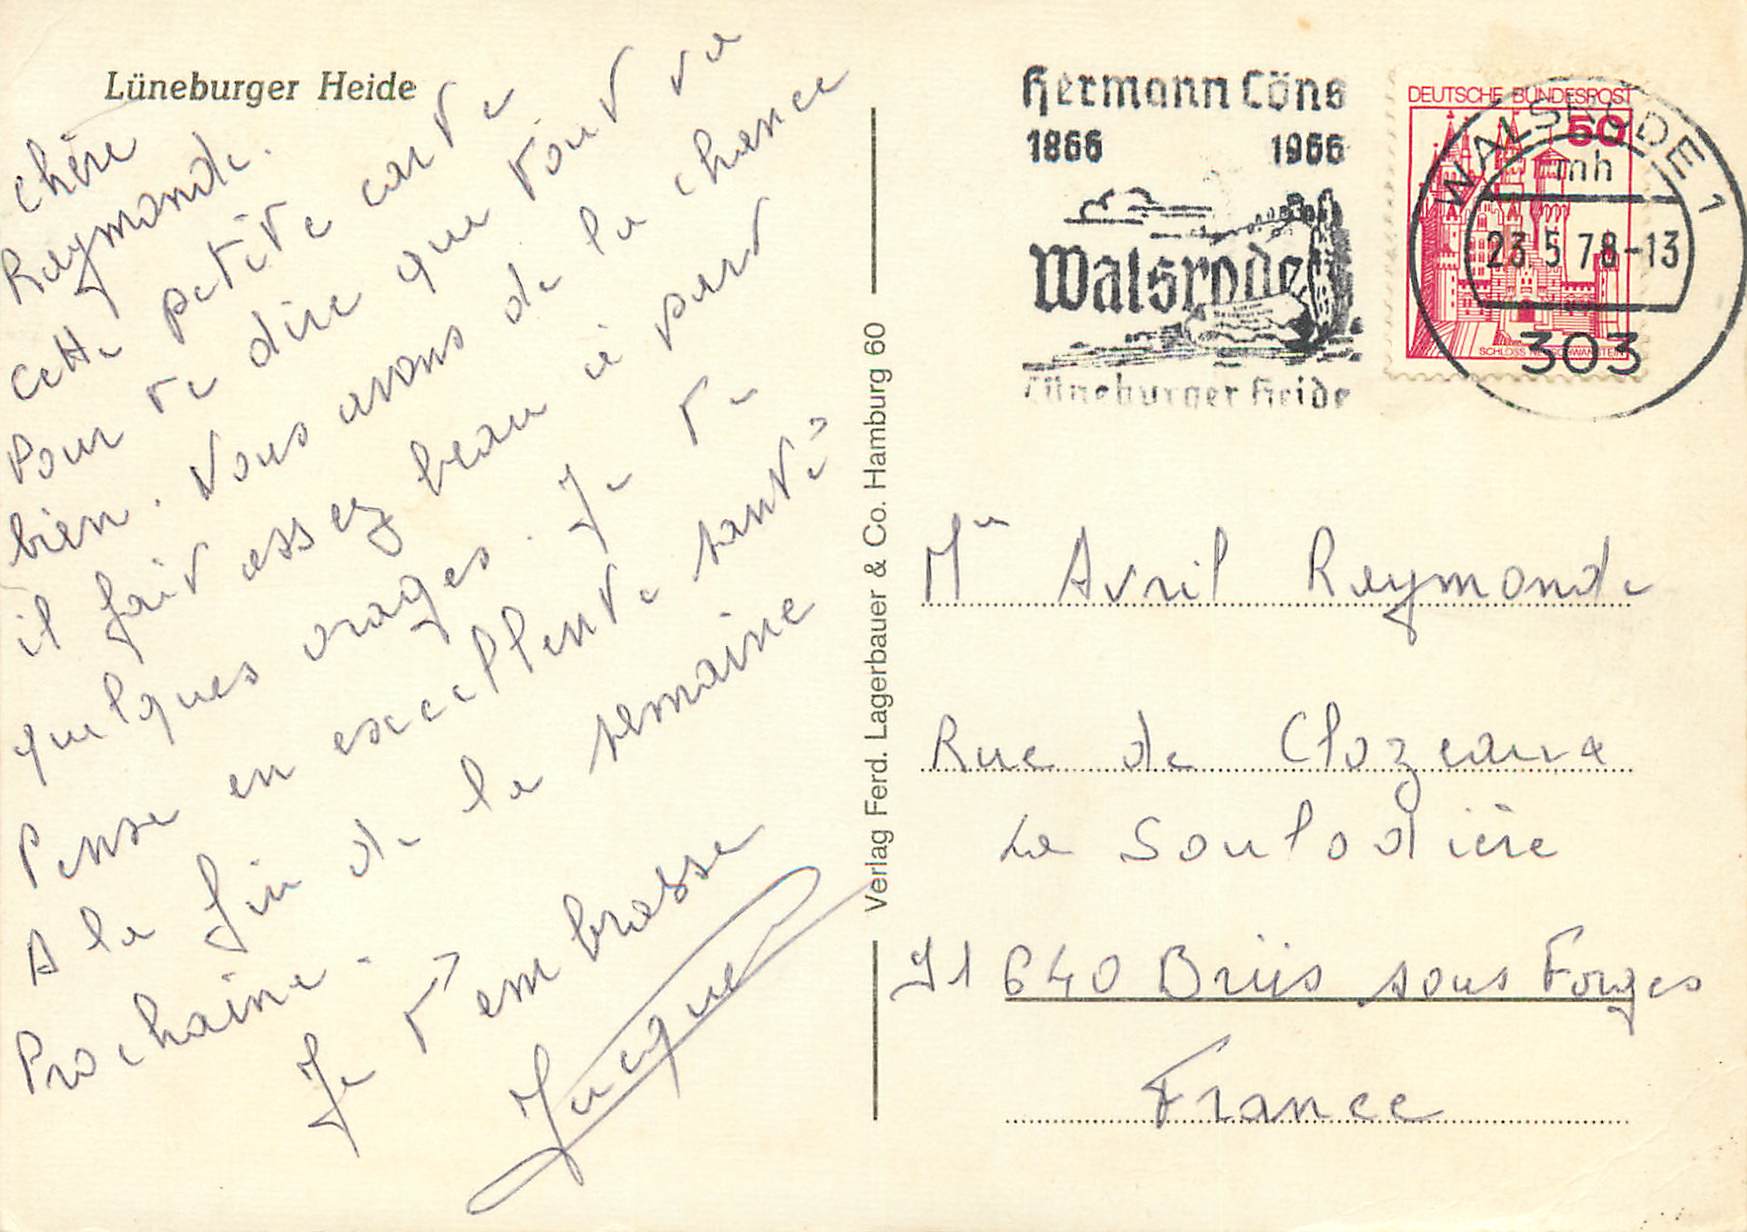 Lüneburger Heide
chère
Raymonde.
cette petite carte
Pour te dire que tout va
bien. Nous avons de la chance
il fait assez beau à part
quelques orages. Je te
Pense en excellente santé
A la fin de la semaine
Prochaine.
Je t'embrasse
Jacques
Verlag Ferd. Lagerbauer & Co. Hamburg 60
Hermann Löns
1866 1966
Walsrode
Lüneburger Heide
DEUTSCHE BUNDESPOST
50
SCHLOSS NEUSCHWANSTEIN
WALSRODE 1
mh
23.5.78-13
303
Me Avril Raymonde
Rue de Clozeaux
La Soulodière
91 640 Briis sous Forges
France